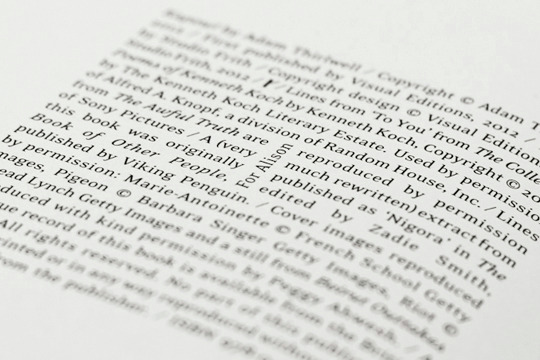 Kapow! by Adam Thirlwell / Copyright © Adam T
2012 / First published by Visual Editions, 2012 /
by Studio Frith / Copyright design © Visual Edition
Studio Frith, 2012 / Lines from 'To You' from The Colle
Poems of Kenneth Koch by Kenneth Koch, Copyright © 20
by The Kenneth Koch Literary Estate. Used by permissio
of Alfred A. Knopf, a division of Random House, Inc. / Lines
from The Awful Truth are reproduced by permission
of Sony Pictures / A (very much rewritten) extract from
this book was originally published as 'Nigora' in The
Book of Other People, edited by Zadie Smith,
published by Viking Penguin. / Cover images reproduced
by permission: Marie-Antoinette © French School Getty
mages, Pigeon © Barbara Singer Getty Images, Riot ©
ead Lynch Getty Images and a still from
duced with kind permission by Peggy
ue record of this book is available from the
All rights reserved. No part of this
rinted or in any way reproduced without
from the publisher. /
For Alison